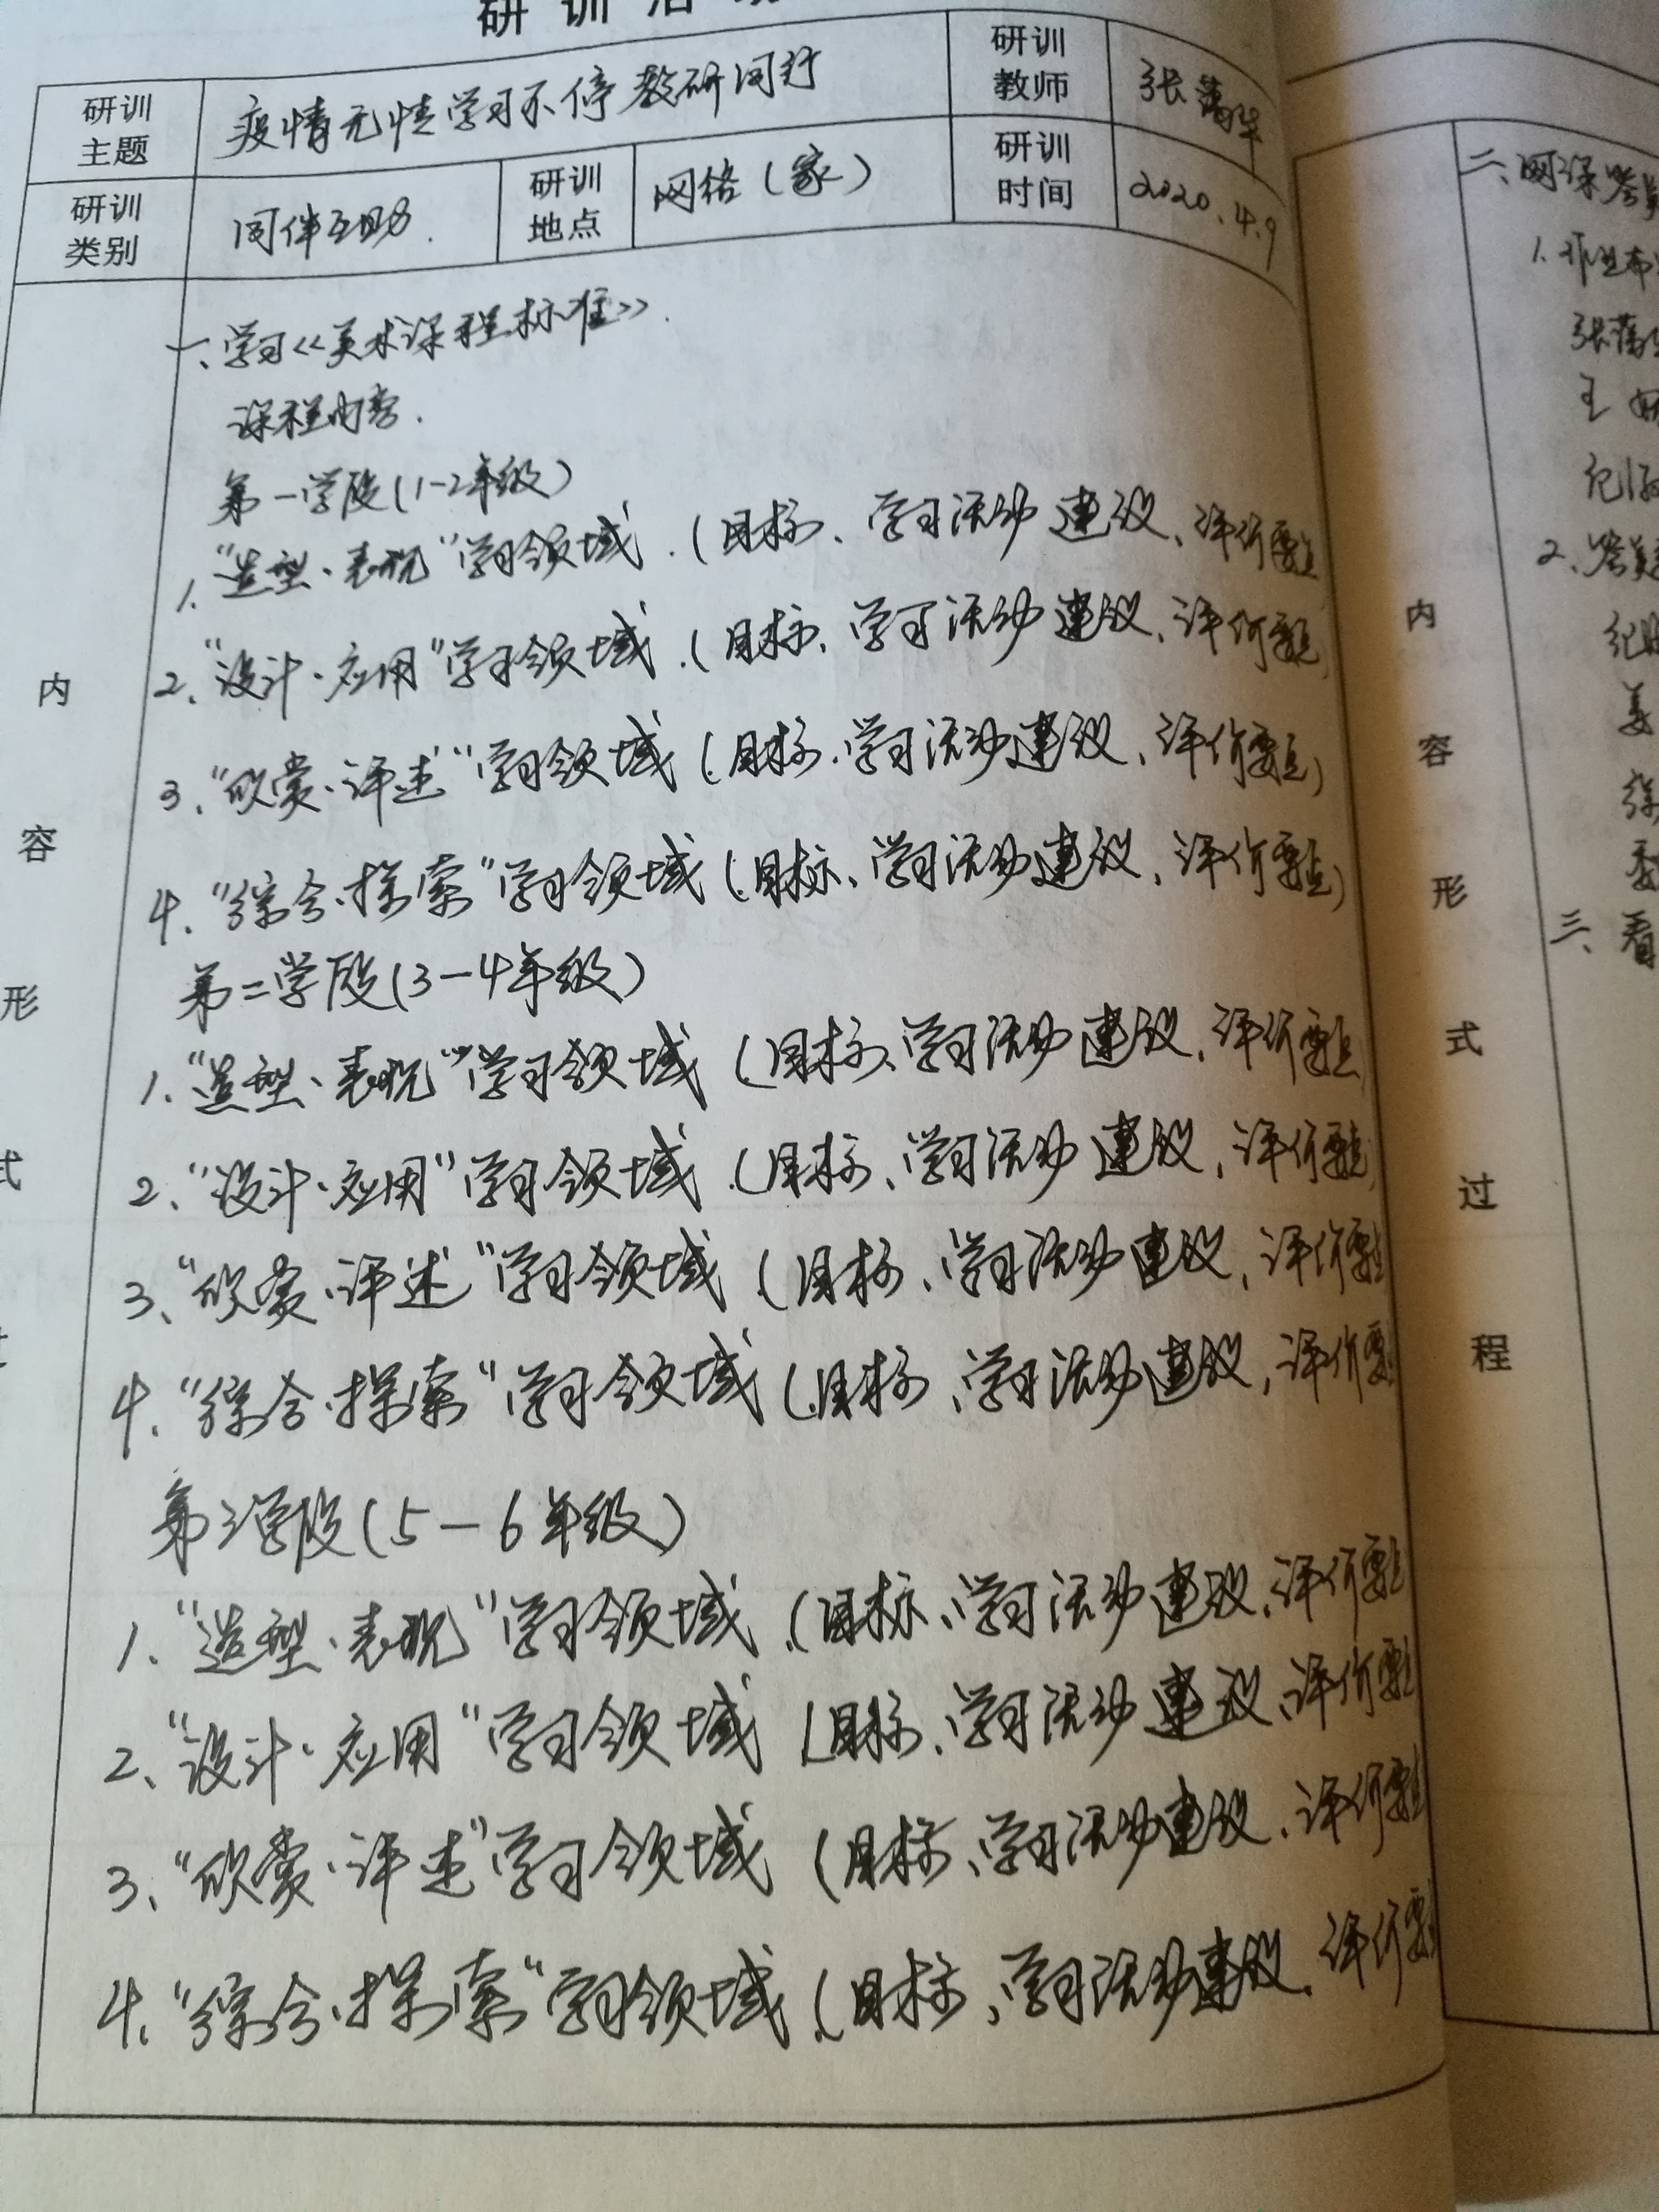 研训活
研训主题 疫情无情学习不停教研同行 研训教师 张
研训类别 同伴互助. 研训地点 网络(家) 研训时间 2020.4.9
内容形式
一、学习《美术课程标准》.
课程内容.
第一学段(1-2年级)
1."造型·表现"学习领域.(目标、学习活动建议、评价要点
2."设计·应用"学习领域.(目标、学习活动建议、评价要点
3."欣赏·评述"学习领域(目标、学习活动建议、评价要点)
4."综合·探索"学习领域(目标、学习活动建议、评价要点)
第二学段(3-4年级)
1."造型·表现"学习领域(目标、学习活动建议、评价要点
2、"设计·应用"学习领域(目标、学习活动建议、评价要点
3、"欣赏·评述"学习领域(目标、学习活动建议、评价要点
4."综合·探索"学习领域(目标、学习活动建议、评价要
第三学段(5-6年级)
1、"造型·表现"学习领域(目标、学习活动建议、评价要点
2、"设计·应用"学习领域(目标、学习活动建议、评价要点
3、"欣赏·评述"学习领域(目标、学习活动建议、评价要点
4."综合·探索"学习领域(目标、学习活动建议、评价要
内容形式过程
二、网课答
1.
张
王
2、答
姜
三、看